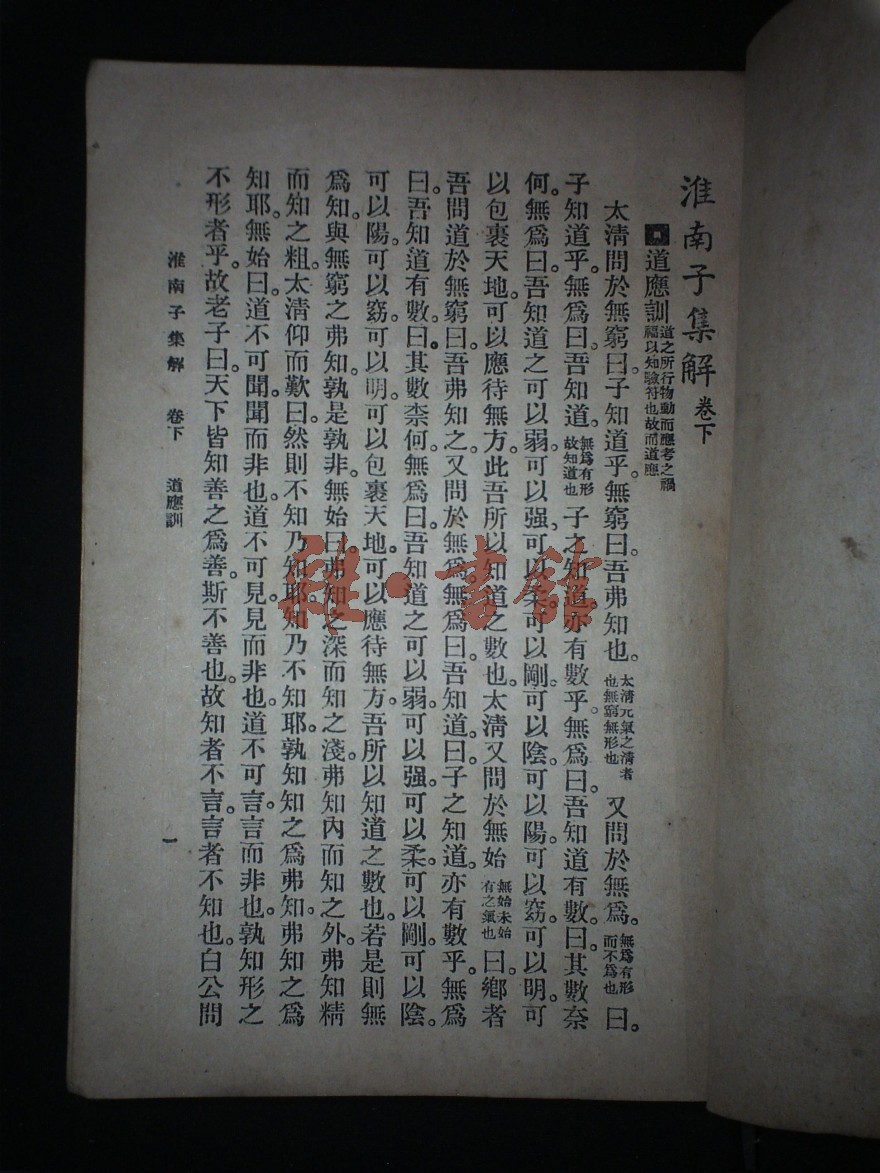 淮南子集解 卷下
道應訓 道之所行物動而應考之禍
福以知驗符也故曰道應
太清問於無窮曰子知道乎無窮曰吾弗知也。太清元氣之清者也無窮無形也 又問於無爲。無爲有形而不爲也 曰。
子知道乎。無爲曰。吾知道。無爲有形故知道也 子之知道。亦有數乎。無爲曰。吾知道有數。曰。其數奈
何。無爲曰。吾知道之可以弱。可以强。可以柔。可以剛。可以陰。可以陽。可以窈。可以明。可
以包裹天地。可以應待無方。此吾所以知道之數也。太清又問於無始 無始未始有之氣也 曰。鄉者
吾問道於無窮。曰。吾弗知之。又問於無爲。無爲曰。吾知道。曰。子之知道。亦有數乎。無爲
曰。吾知道有數。曰。其數柰何。無爲曰。吾知道之可以弱。可以强。可以柔。可以剛。可以陰。
可以陽。可以窈。可以明。可以包裹天地。可以應待無方。吾所以知道之數也。若是則無
爲知。與無窮之弗知。孰是孰非。無始曰。弗知之深而知之淺。弗知內而知之外。弗知精
而知之粗。太清仰而歎曰。然則不知乃知耶。知乃不知耶。孰知知之爲弗知。弗知之爲
知耶。無始曰。道不可聞。聞而非也。道不可見。見而非也。道不可言。言而非也。孰知形之
不形者乎。故老子曰。天下皆知善之爲善。斯不善也。故知者不言。言者不知也。白公問
淮南子集解 卷下 道應訓 一
雅·書館